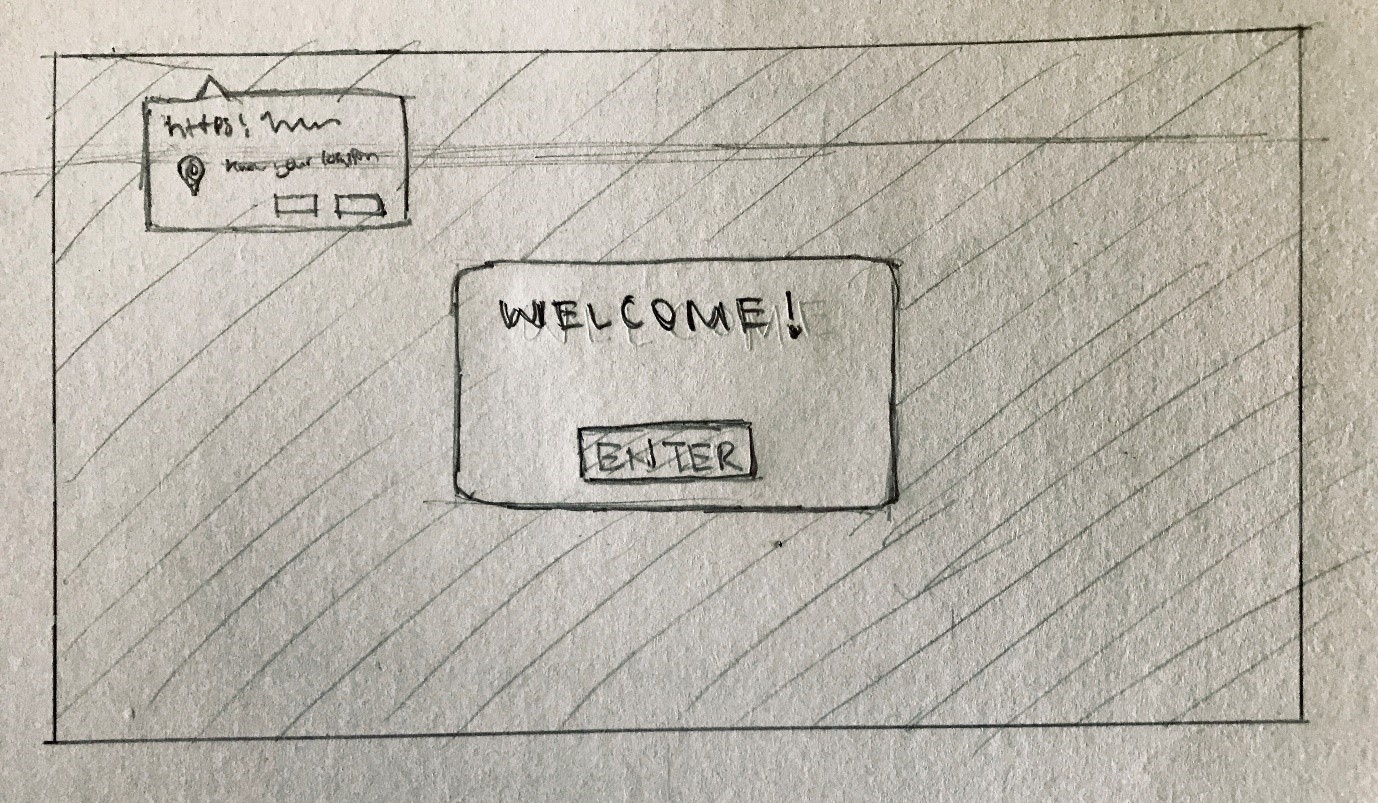 https!
Know your location
WELCOME!
ENTER